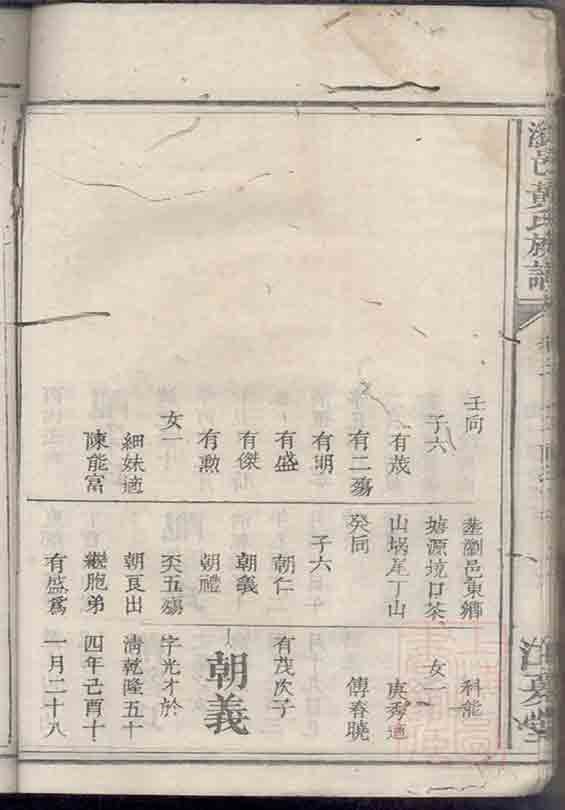 瀏邑黃氏族譜
江夏堂
壬向
子六
有茂
有二殤
有明
有盛
有傑
有勲
女一
細妹適
陳能富
葬瀏邑東鄉
塘源境口茶
山埚尾丁山
癸向
子六
朝仁
朝義
朝禮
天五殤
朝良出
繼胞弟
有盛爲
科能
女一
庚秀適
傅春曉
有茂次子
朝義
字光才於
淸乾隆五十
四年己酉十
一月二十八